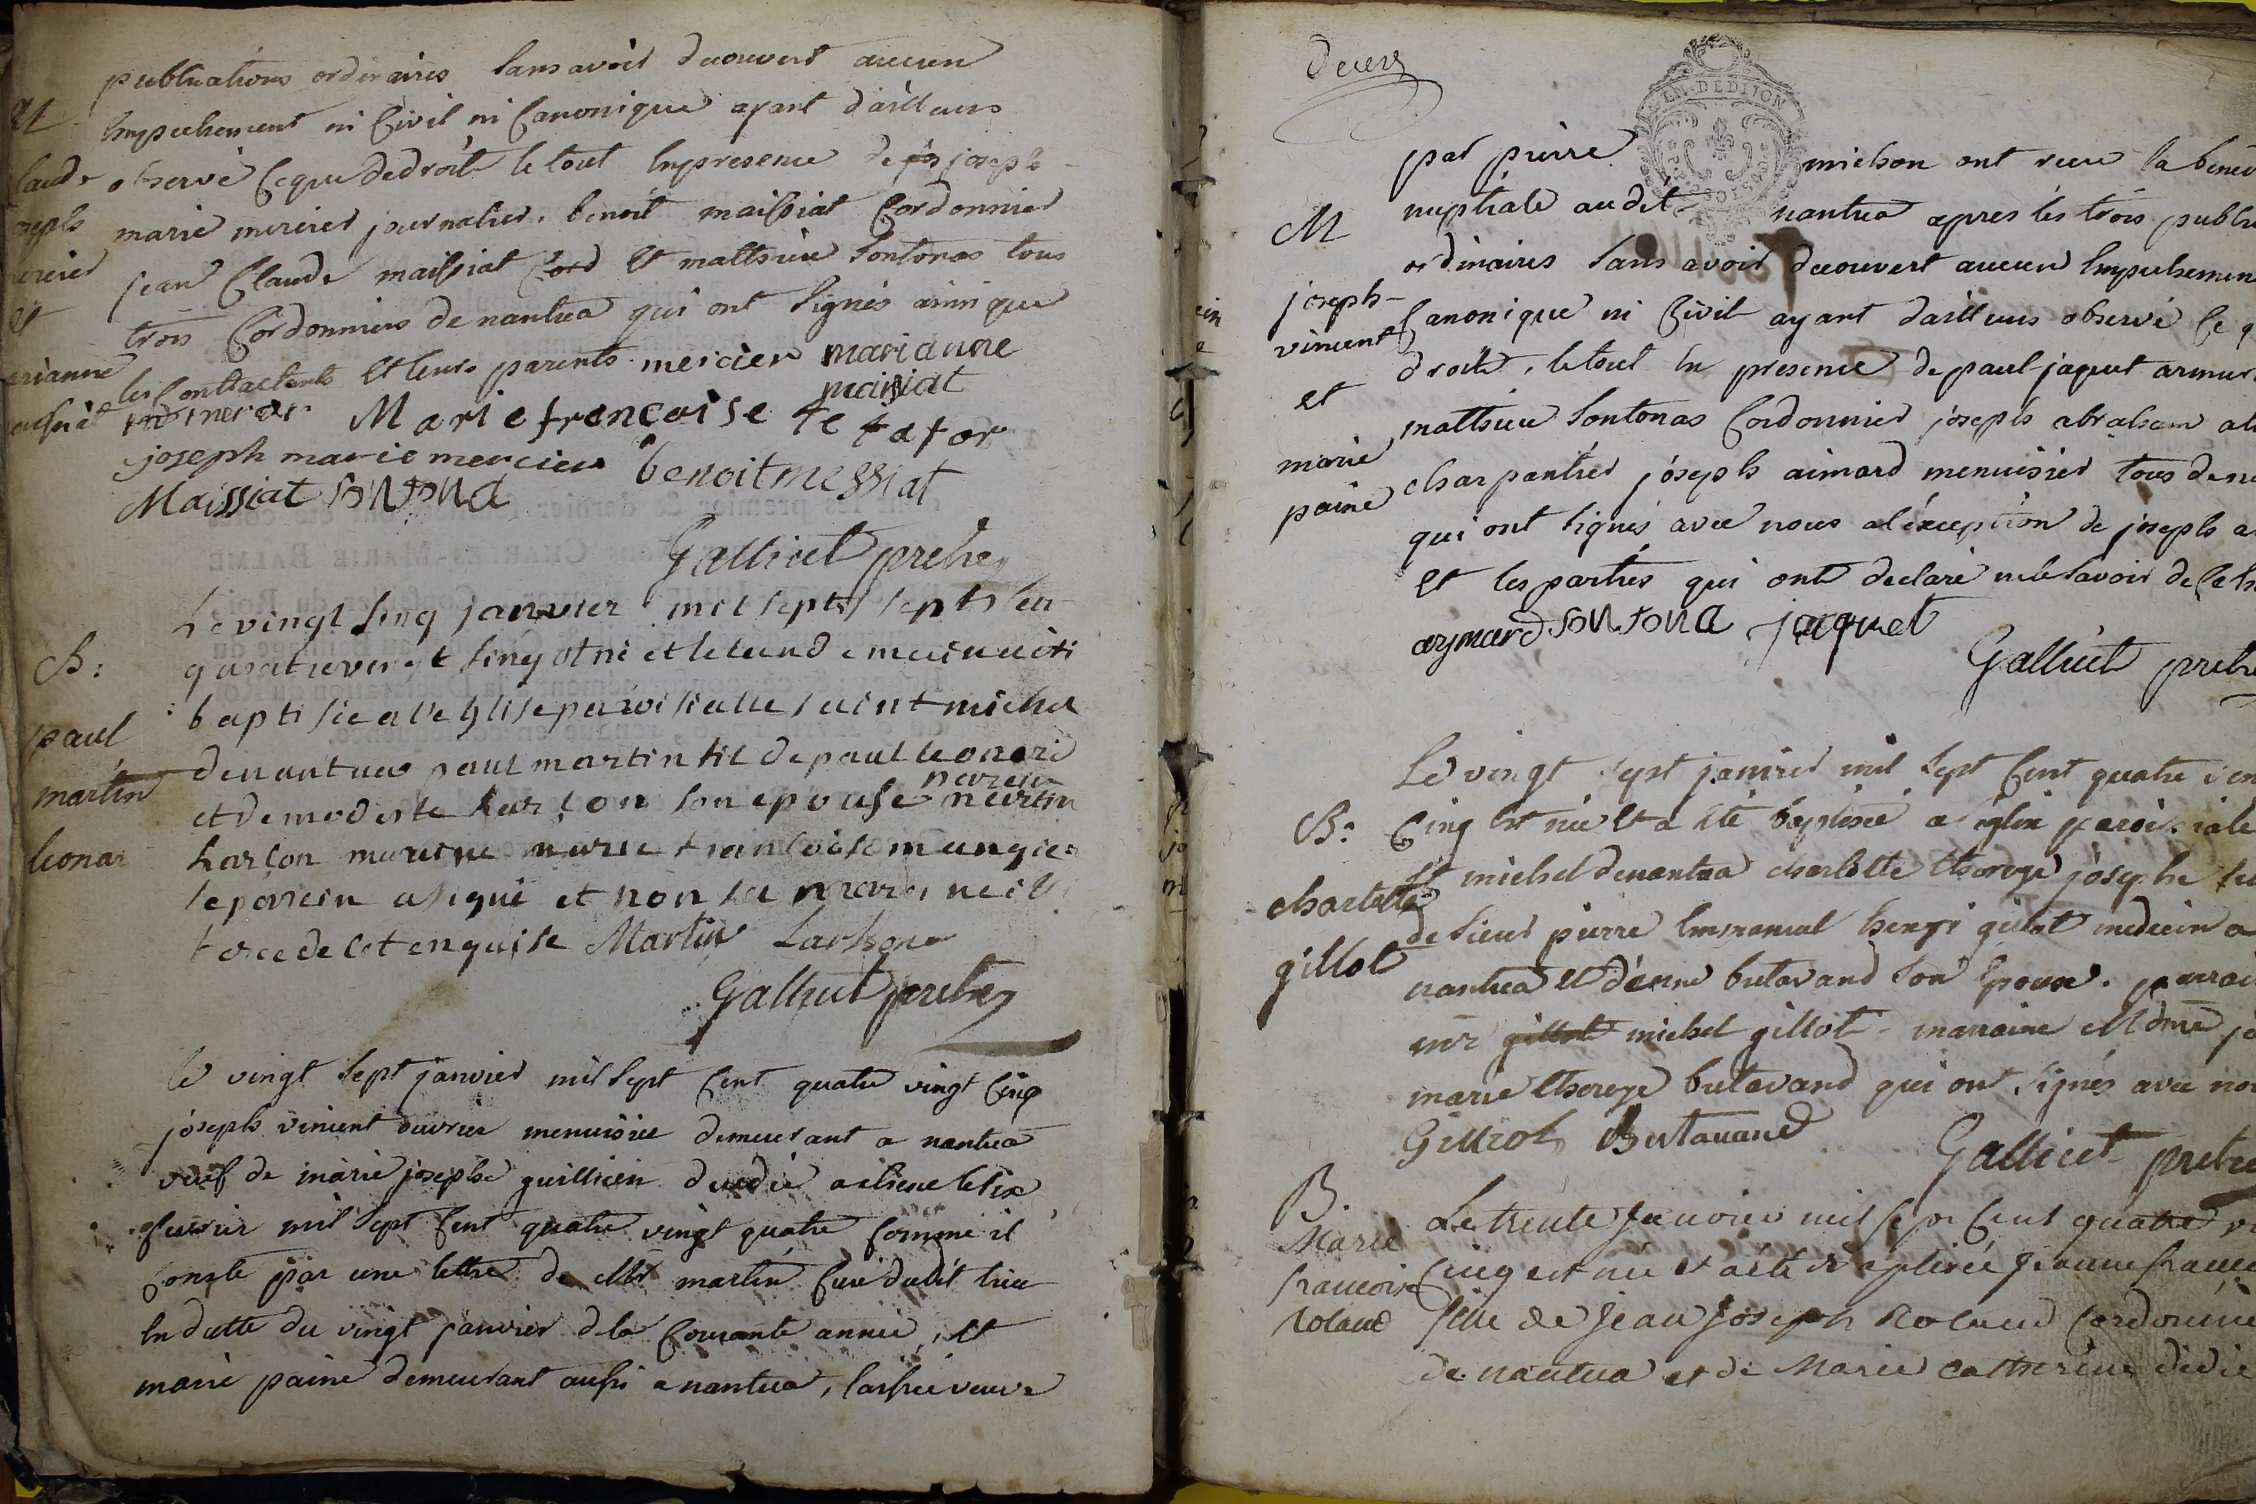 publications ordinaires sans avoir decouvert aucun
Et
Empechement ni Civil ni Canonique ayant d'ailleurs
laude
observé Ceque dedroit le tout En presence de joseph
oseph
marie mercier journalier. benoit maissiat Cordonnier
ercier
jean Claude maissiat Cord Et matthieu Sontonas tous
Et
trois Cordonniers de nantua qui ont signés ainsi que
arianne
les Contractents Et leurs parents. mercier marianne
maissiat
Marie francoise
joseph marie mercier benoit messiat
Maissiat sontona
Gallicet pretre
Le vingt sinq janvier mil sept sent
B:
quatrevingt sinq
baptisé a l'eglise paroisialle saint michel
paul
denantua paul martin fil de paul leonard
martin
et de modeste Larson son epouse parein martin
leonar
Larson mareine marie fransoise
le parein a signé et non la mareine
de Cet enquise Martin Larson
Gallicet pretre
le vingt sept janvier mil sept Cent quatre vingt Cinq
joseph vincent ouvrier menuisier demeurant a nantua
veuf de marie josephe guillicin decedée a le six
fevrier mil sept Cent quatre vingt quatre Comme il
Conste par une lettre de Mr martin Curé dudit lieu
En datte du vingt janvier dela Courante année, Et
marie paine demeurant aussi a nantua, laissée veuve
EN. DE DIJON
par pierre michon ont recu la béned
M
nuptiale audit nantua apres les trois publi
ordinaires sans avoir decouvert aucun Empechemen
joseph
Canonique ni Civil ayant dailleurs observé Ce q
vincent
droit, letout En presence de paul jaquet armur
et
matthieu Sontonas Cordonnier joseph abraham
marie
charpantier joseph aimard menuisier tous de n
paine
qui ont signés avec nous al'exception de joseph a
Et les parties qui ont declaré nele savoir de Ce
aymard sontona jaquet
Gallicet pretre
Le vingt sept janvier mil sept Cent quatre vin
B:
Cinq Est née Et a Eté baptisée a eglise paroissiale
st michel denantua charlotte therese josephe
charlotte
de sieur pierre Emmanuel henri gillot medecin a
gillot
nantua Et d'anne butavand son Epouse. parrai
mr michel gillot marraine Mdme jo
marie therese butavand qui ont signés avec nou
Gillot Butavand
Gallicet pretre
B.
Le trente Janvier mil sept Cent quatre vi
Marie
Cinq est née et a été Baptisée Jeanne france
francoise
fille de Jean Joseph Roland Cordonnie
Roland
de nantua et de Marie Catherine didie